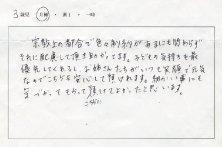 3歳児 月極・週1・一時
宗教上の都合で色々制約があるにも関わらず
それに配慮して頂き助かってます。子どもの気持ちを最
優先してくれるし、お姉さんたちがいつも笑顔で元気
なのでこちらも安心して預けられます。細かい事にも
気づかってもらって預けてよかったと思います。